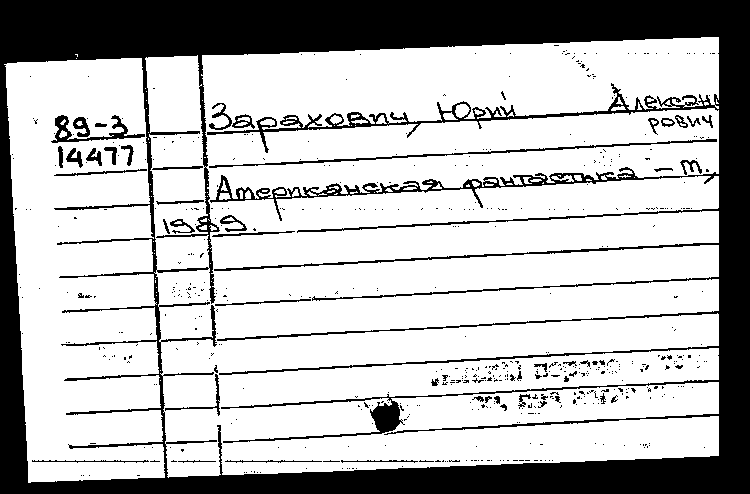 89-3 Зарахович, Юрий Александ
рович
14477
Американская фантастика – т.,
1989.